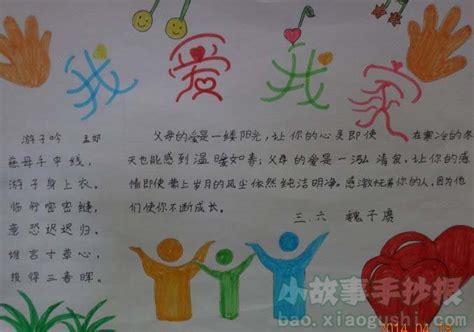 我爱我家
游子吟 孟郊
慈母手中线,
游子身上衣。
临行密密缝,
意恐迟迟归。
谁言寸草心,
报得三春晖。
父母的爱是一缕阳光,让你的心灵即使 在寒冷的冬
天也能感到温暖如春;父母的爱是一泓清泉,让你的感
情即使蒙上岁月的风尘依然纯洁明净。感激抚养你的人,因为他
们使你不断成长。
三.六 魏子赓
小故事手抄报
bao.xiaogushi.com